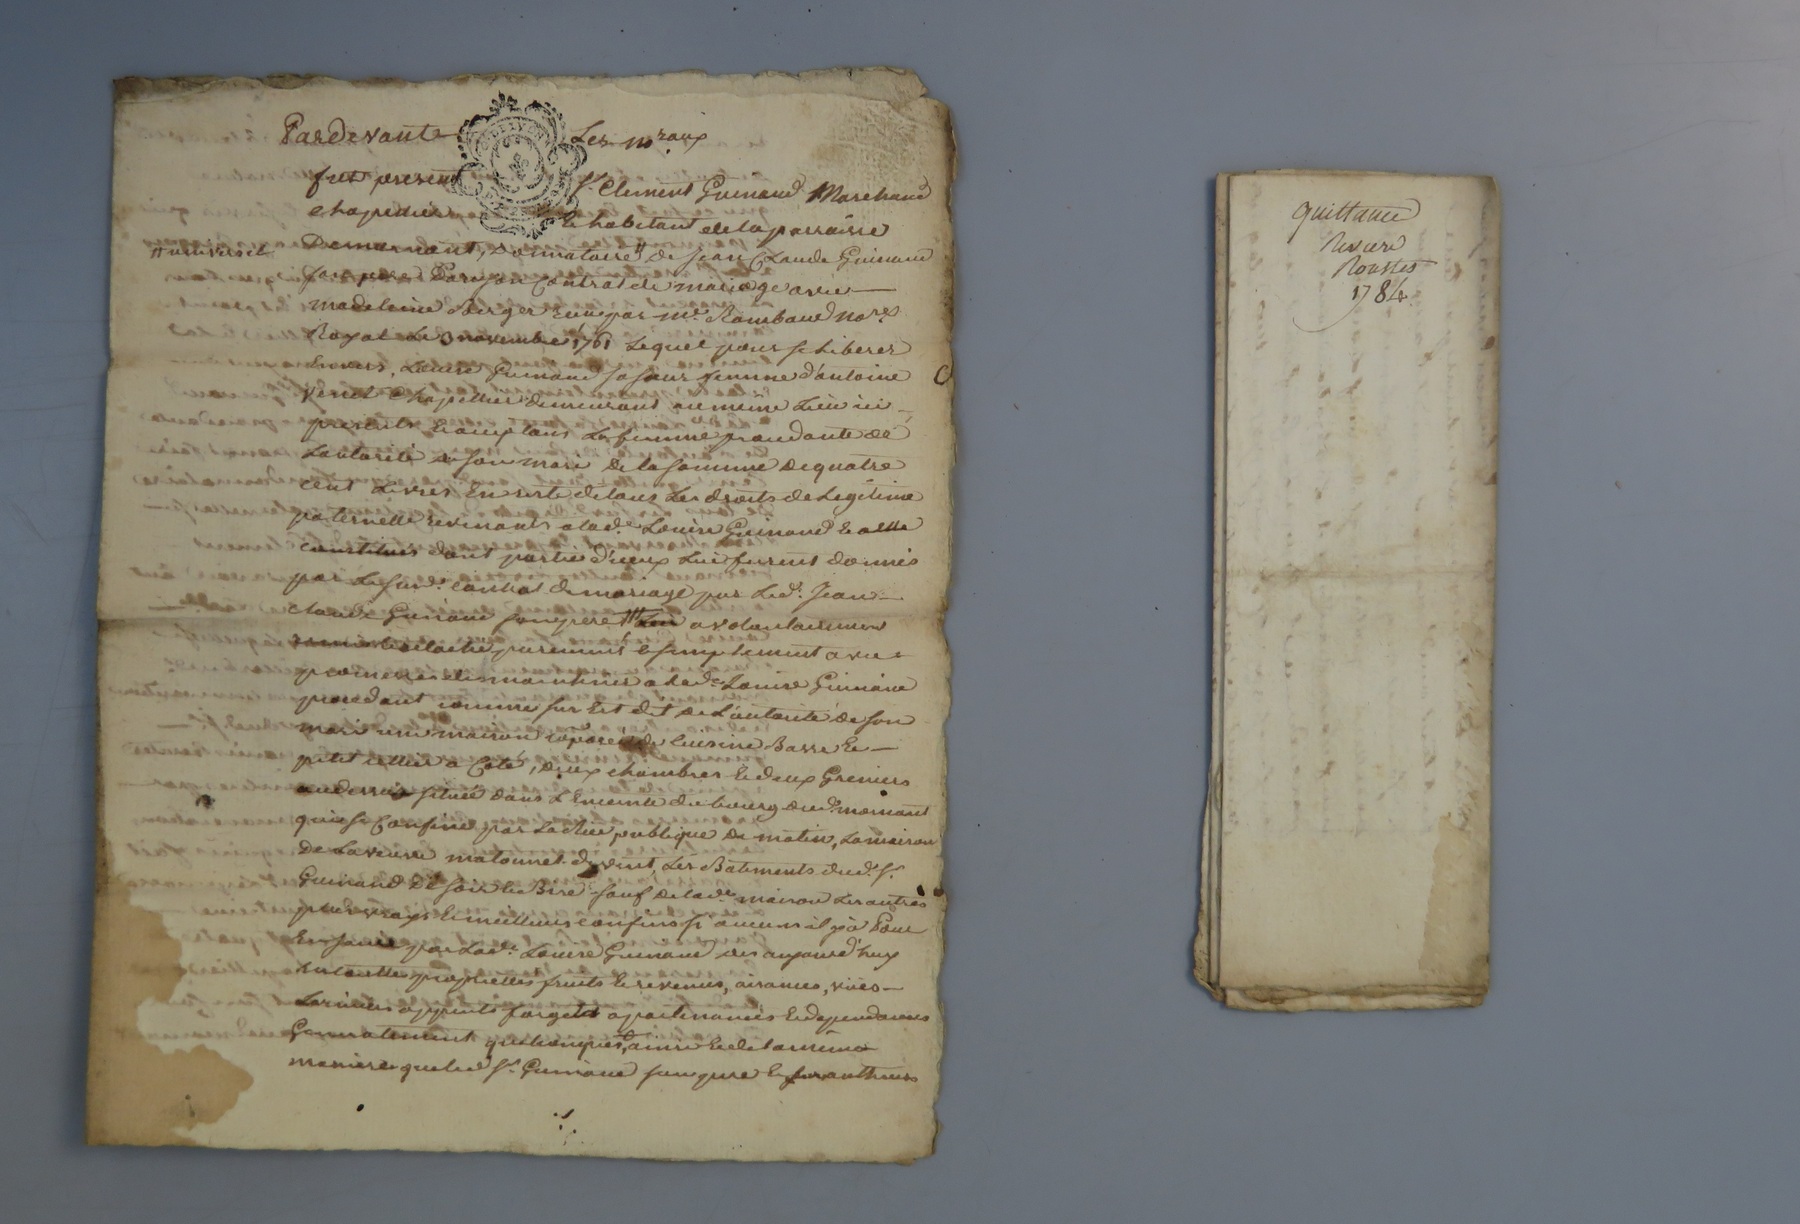 Pardevant Les no.raux
fut present Sr. Clement Guinand Marchand
chapellier & habitant de la parroisse
Demornant, Donnataire # de Jean Claude Guinand
# universel
son pere Par son Contrat de mariage avec
madeleine Berger reçu par me. Rambaud no.re
Royal Le 3 novembre 1761 Lequel pour se Liberer
Envers, Louise Guinand sa sœur femme d'antoine
Venet Chapellier demeurant au meme Lieu ici
presents & acceptans La femme procedante de
L'autorité de son mari de la somme de quatre
cent Livres En reste de tous Les droits de Legitime
paternelle revenants a lade. Louise Guinand & a elle
constitués dont partie d'iceux Lui furent donnés
par Le susd. contrat de mariage par Led. Jean
claude Guinand son pere a volontairement
remis & relaché purement & simplement avec
promesse de maintenir a lade. Louise Guinand
procedant comme sus Est dit de L'autorité de son
mari une maison Composée de Cuisine Basse &
petit cellier a Coté, deux chambres & deux Greniers
audessus située dans L'Enceinte du bourg dud. mornant
qui se Confine par La Rue publique de matin, La maison
de La veuve matonnet de vent, Les Batiments dud. Sr.
Guinand De soir & Bize sauf de lade. maison Les autres
plus vrays & meilleurs confins si aucuns il y a Pour
En jouir par Lade. Louise Guinand des aujourd'huy
En toutte proprietté fruits & revenus, aisances, vües
appartenances & dependances
Generalement quelconques, ainsi & de la meme
maniere que led. Sr. Guinand son pere & ses autheurs
quittance
Roustes
1784